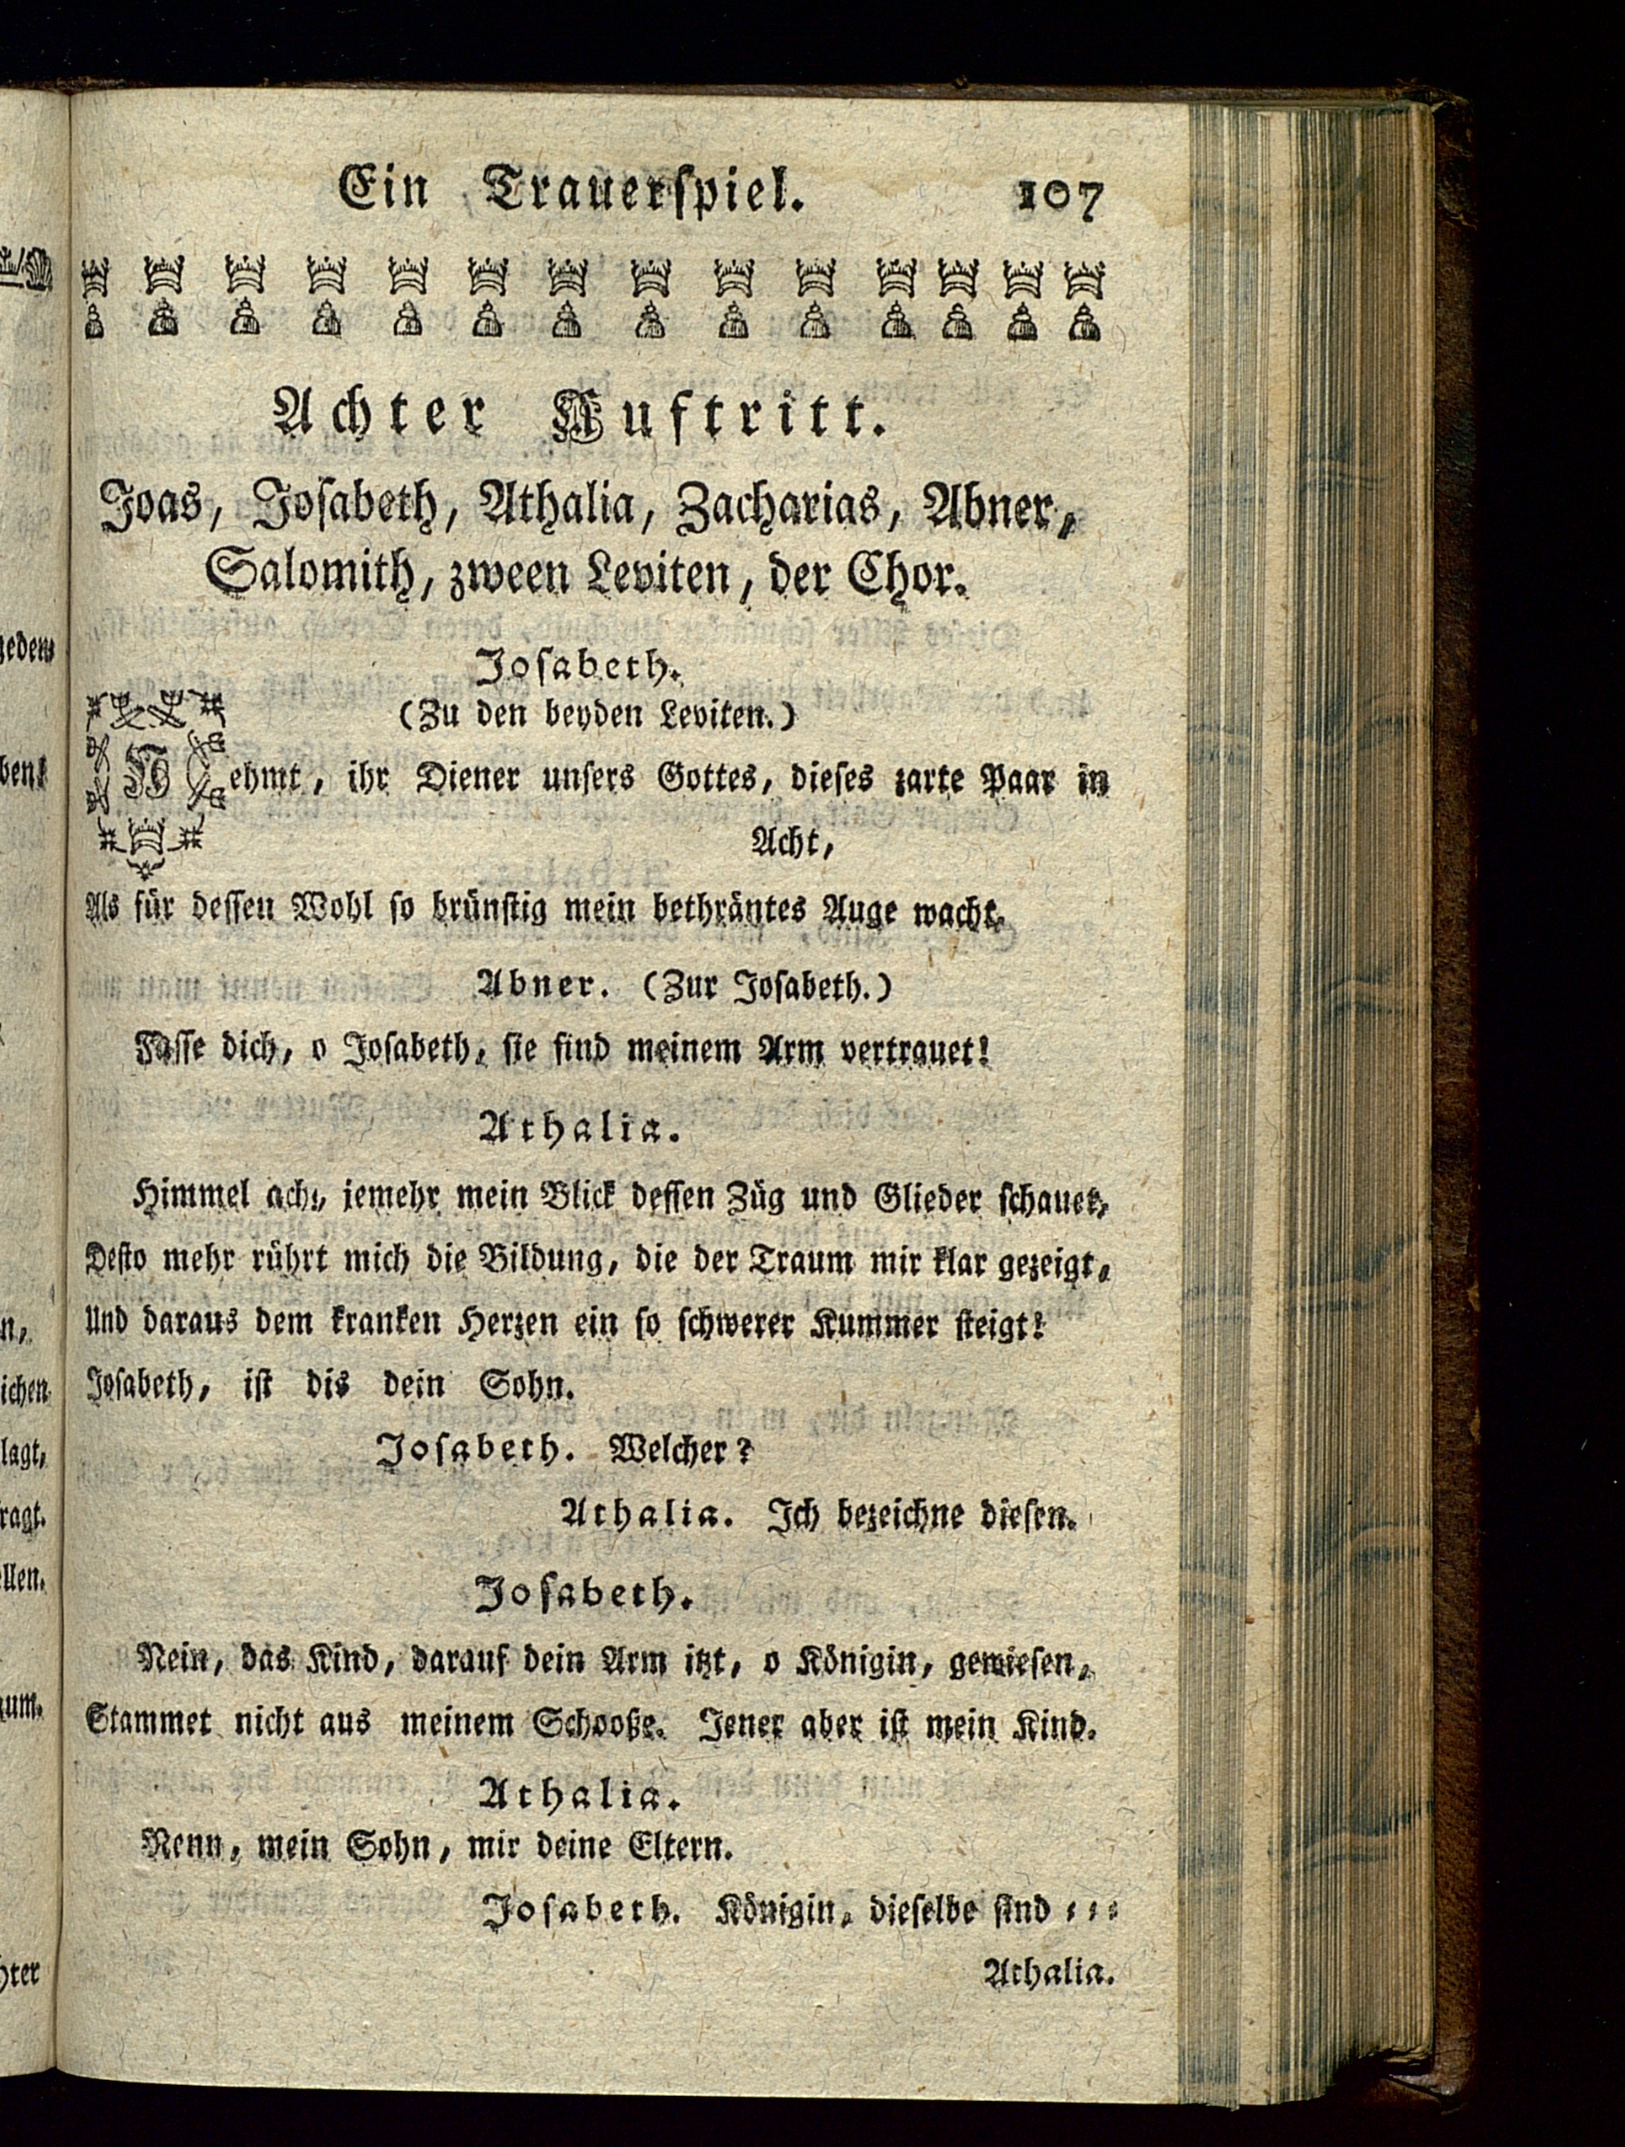 Ein Trauerſpiel. 107
Achter Auftritt.
Joas, Joſabeth, Athalia, Zacharias, Abner,
Salomith, zween Leviten, der Chor.
Joſabeth.
(Zu den beyden Leviten.)
Nehmt, ihr Diener unſers Gottes, dieſes zarte Paar in
Acht,
Als für deſſen Wohl ſo brünſtig mein bethräntes Auge wacht.
Abner. (Zur Joſabeth.)
Faſſe dich, o Joſabeth, ſie ſind meinem Arm vertrauet!
Athalia.
Himmel ach, jemehr mein Blick deſſen Züg und Glieder ſchauet,
Deſto mehr rührt mich die Bildung, die der Traum mir klar gezeigt,
Und daraus dem kranken Herzen ein ſo ſchwerer Kummer ſteigt!
Joſabeth, iſt dis dein Sohn.
Joſabeth. Welcher?
Athalia. Ich bezeichne dieſen.
Joſabeth.
Nein, das Kind, darauf dein Arm itzt, o Königin, gewieſen,
Stammet nicht aus meinem Schooße. Jener aber iſt mein Kind.
Athalia.
Nenn, mein Sohn, mir deine Eltern.
Joſabeth. Königin, dieſelbe ſind ⸗ ⸗ ⸗
Athalia.